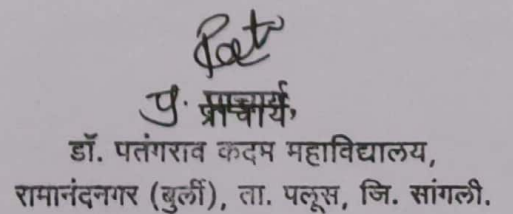 प्र. प्राचार्य,
डॉ. पतंगराव कदम महाविद्यालय,
रामानंदनगर (बुर्ली), ता. पलूस, जि. सांगली.